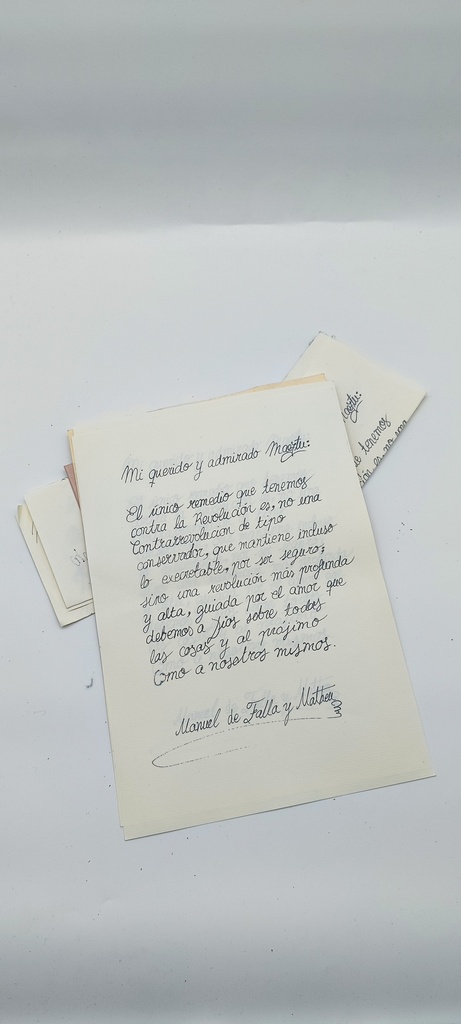 Mi querido y admirado Maeztu:
El único remedio que tenemos
contra la Revolución es, no una
Contrarrevolución de tipo
conservador, que mantiene incluso
lo execretable, por ser seguro;
sino una revolución más profunda
y alta, guiada por el amor que
debemos a Dios sobre todas
las cosas y al prójimo
como a nosotros mismos.
Manuel de Falla y Matheu
tenemos
es no una